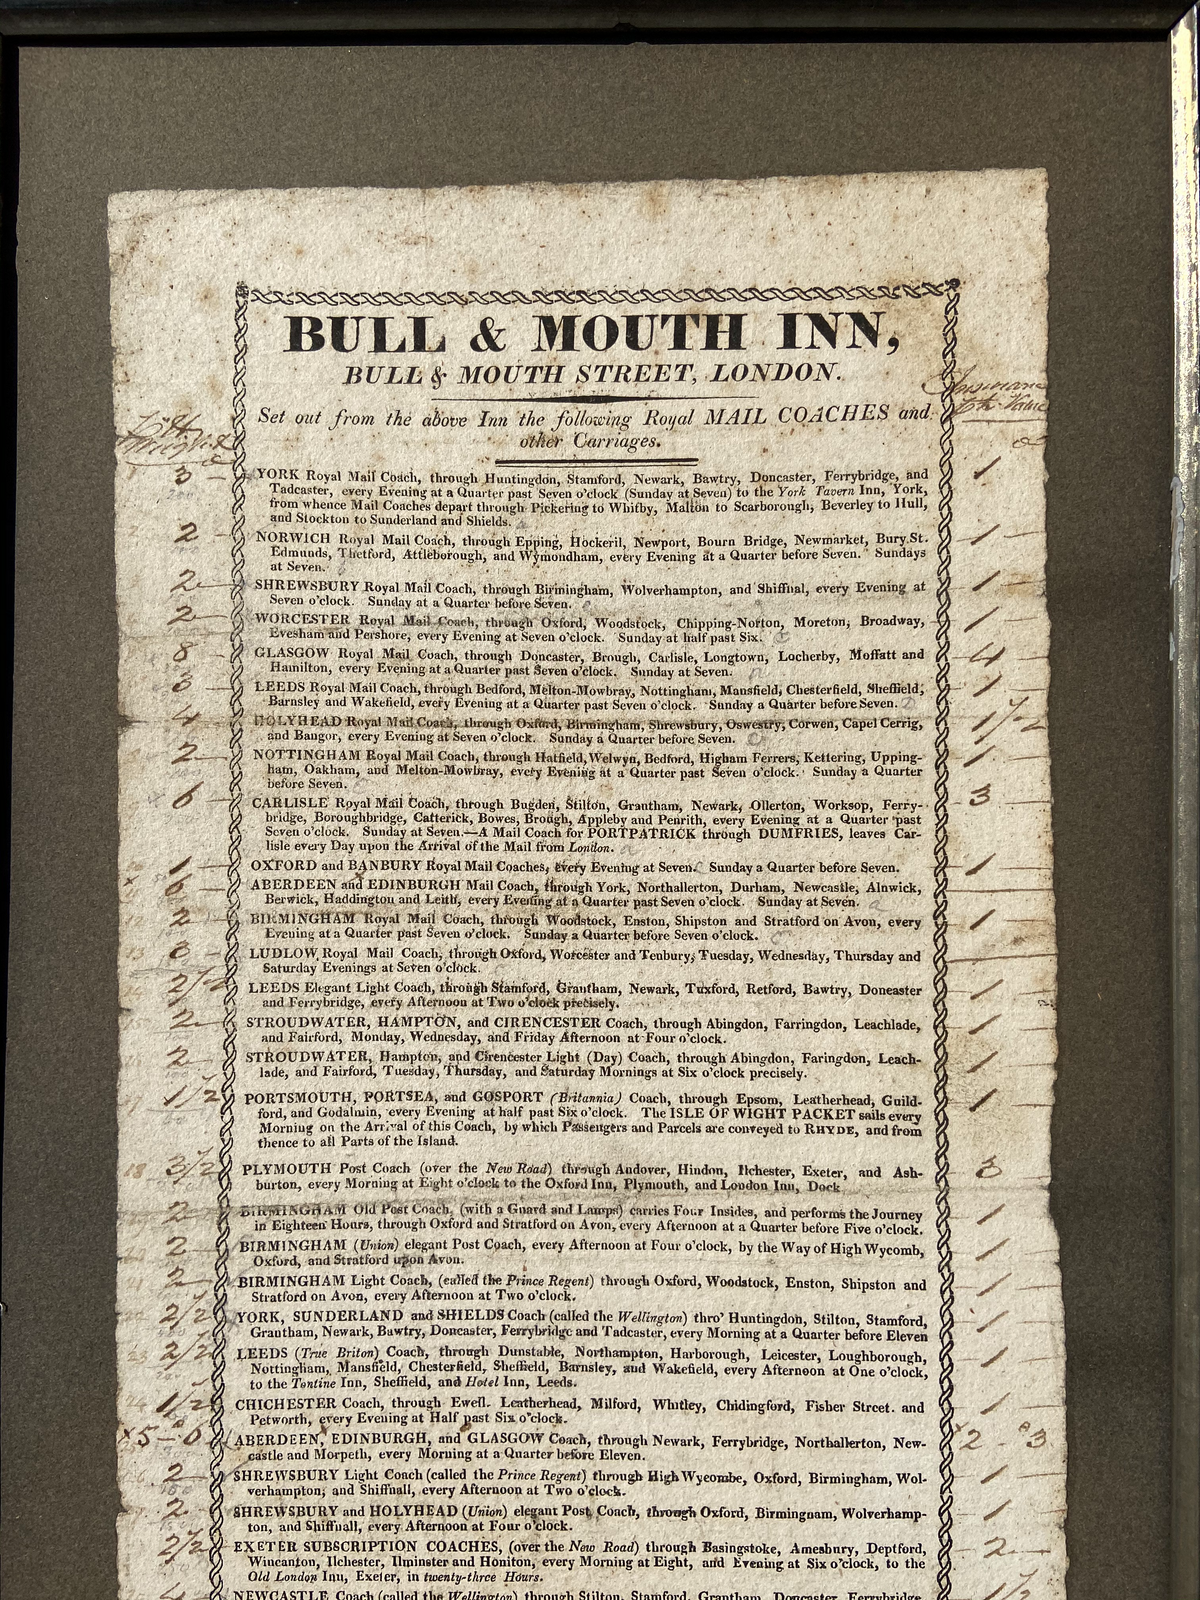 BULL & MOUTH INN,
BULL & MOUTH STREET, LONDON.
Insurance
Set out from the above Inn the following Royal MAIL COACHES and
other Carriages.
3 YORK Royal Mail Coach, through Huntingdon, Stamford, Newark, Bawtry, Doncaster, Ferrybridge, and 1
Tadcaster, every Evening at a Quarter past Seven o'clock (Sunday at Seven) to the York Tavern Inn, York,
from whence Mail Coaches depart through Pickering to Whitby, Malton to Scarborough, Beverley to Hull,
and Stockton to Sunderland and Shields.
2 NORWICH Royal Mail Coach, through Epping, Hockeril, Newport, Bourn Bridge, Newmarket, Bury.St. 1
Edmunds, Thetford, Attleborough, and Wymondham, every Evening at a Quarter before Seven. Sundays
at Seven.
2 SHREWSBURY Royal Mail Coach, through Birmingham, Wolverhampton, and Shiffnal, every Evening at 1
Seven o'clock. Sunday at a Quarter before Seven.
2 WORCESTER Royal Mail Coach, through Oxford, Woodstock, Chipping-Norton, Moreton, Broadway, 1
Evesham and Pershore, every Evening at Seven o'clock. Sunday at half past Six.
8 GLASGOW Royal Mail Coach, through Doncaster, Brough, Carlisle, Longtown, Locherby, Moffatt and 4
Hamilton, every Evening at a Quarter past Seven o'clock. Sunday at Seven.
3 LEEDS Royal Mail Coach, through Bedford, Melton-Mowbray, Nottingham, Mansfield, Chesterfield, Sheffield, 1
Barnsley and Wakefield, every Evening at a Quarter past Seven o'clock. Sunday a Quarter before Seven.
4 HOLYHEAD Royal Mail Coach, through Oxford, Birmingham, Shrewsbury, Oswestry, Corwen, Capel Cerrig, 1 1/2
and Bangor, every Evening at Seven o'clock. Sunday a Quarter before Seven.
2 NOTTINGHAM Royal Mail Coach, through Hatfield, Welwyn, Bedford, Higham Ferrers, Kettering, Upping- 1
ham, Oakham, and Melton-Mowbray, every Evening at a Quarter past Seven o'clock. Sunday a Quarter
before Seven.
6 CARLISLE Royal Mail Coach, through Bugden, Stilton, Grantham, Newark, Ollerton, Worksop, Ferry- 3
bridge, Boroughbridge, Catterick, Bowes, Brough, Appleby and Penrith, every Evening at a Quarter past
Seven o'clock. Sunday at Seven.—A Mail Coach for PORTPATRICK through DUMFRIES, leaves Car-
lisle every Day upon the Arrival of the Mail from London.
1 OXFORD and BANBURY Royal Mail Coaches, every Evening at Seven. Sunday a Quarter before Seven. 1
6 ABERDEEN and EDINBURGH Mail Coach, through York, Northallerton, Durham, Newcastle, Alnwick,
Berwick, Haddington and Leith, every Evening at a Quarter past Seven o'clock. Sunday at Seven.
2 BIRMINGHAM Royal Mail Coach, through Woodstock, Enston, Shipston and Stratford on Avon, every 1
Evening at a Quarter past Seven o'clock. Sunday a Quarter before Seven o'clock.
LUDLOW Royal Mail Coach, through Oxford, Worcester and Tenbury, Tuesday, Wednesday, Thursday and
Saturday Evenings at Seven o'clock.
2 1/2 LEEDS Elegant Light Coach, through Stamford, Grantham, Newark, Tuxford, Retford, Bawtry, Doncaster 1
and Ferrybridge, every Afternoon at Two o'clock precisely.
2 STROUDWATER, HAMPTON, and CIRENCESTER Coach, through Abingdon, Farringdon, Leachlade, 1
and Fairford, Monday, Wednesday, and Friday Afternoon at Four o'clock.
2 STROUDWATER, Hampton, and Cirencester Light (Day) Coach, through Abingdon, Faringdon, Leach- 1
lade, and Fairford, Tuesday, Thursday, and Saturday Mornings at Six o'clock precisely.
1 1/2 PORTSMOUTH, PORTSEA, and GOSPORT (Britannia) Coach, through Epsom, Leatherhead, Guild- 1
ford, and Godalmin, every Evening at half past Six o'clock. The ISLE OF WIGHT PACKET sails every
Morning on the Arrival of this Coach, by which Passengers and Parcels are conveyed to RHYDE, and from
thence to all Parts of the Island.
18 3 1/2 PLYMOUTH Post Coach (over the New Road) through Andover, Hindon, Ilchester, Exeter, and Ash- 3
burton, every Morning at Eight o'clock to the Oxford Inn, Plymouth, and London Inn, Dock
2 BIRMINGHAM Old Post Coach, (with a Guard and Lamps) carries Four Insides, and performs the Journey 1
in Eighteen Hours, through Oxford and Stratford on Avon, every Afternoon at a Quarter before Five o'clock.
2 BIRMINGHAM (Union) elegant Post Coach, every Afternoon at Four o'clock, by the Way of High Wycomb, 1
Oxford, and Stratford upon Avon.
2 BIRMINGHAM Light Coach, (called the Prince Regent) through Oxford, Woodstock, Enston, Shipston and 1
Stratford on Avon, every Afternoon at Two o'clock.
2 1/2 YORK, SUNDERLAND and SHIELDS Coach (called the Wellington) thro' Huntingdon, Stilton, Stamford, 1
Grantham, Newark, Bawtry, Doncaster, Ferrybridge and Tadcaster, every Morning at a Quarter before Eleven
2 1/2 LEEDS (True Briton) Coach, through Dunstable, Northampton, Harborough, Leicester, Loughborough, 1
Nottingham, Mansfield, Chesterfield, Sheffield, Barnsley, and Wakefield, every Afternoon at One o'clock,
to the Tontine Inn, Sheffield, and Hotel Inn, Leeds.
1 1/2 CHICHESTER Coach, through Ewell. Leatherhead, Milford, Whitley, Chidingford, Fisher Street. and 1
Petworth, every Evening at Half past Six o'clock.
x5-6 ABERDEEN, EDINBURGH, and GLASGOW Coach, through Newark, Ferrybridge, Northallerton, New- x2 3
castle and Morpeth, every Morning at a Quarter before Eleven.
2 SHREWSBURY Light Coach (called the Prince Regent) through High Wycombe, Oxford, Birmingham, Wol- 1
verhampton, and Shiffnall, every Afternoon at Two o'clock.
2 SHREWSBURY and HOLYHEAD (Union) elegant Post Coach, through Oxford, Birmingnam, Wolverhamp- 1
ton, and Shiffnall, every Afternoon at Four o'clock.
2 1/2 EXETER SUBSCRIPTION COACHES, (over the New Road) through Basingstoke, Amesbury, Deptford, 2
Wincanton, Ilchester, Ilminster and Honiton, every Morning at Eight, and Evening at Six o'clock, to the
Old London Inn, Exeter, in twenty-three Hours.
NEWCASTLE Coach (called the Wellington) through Stilton, Stamford, Grantham, Doncaster, Ferrybridge, 1 1/2